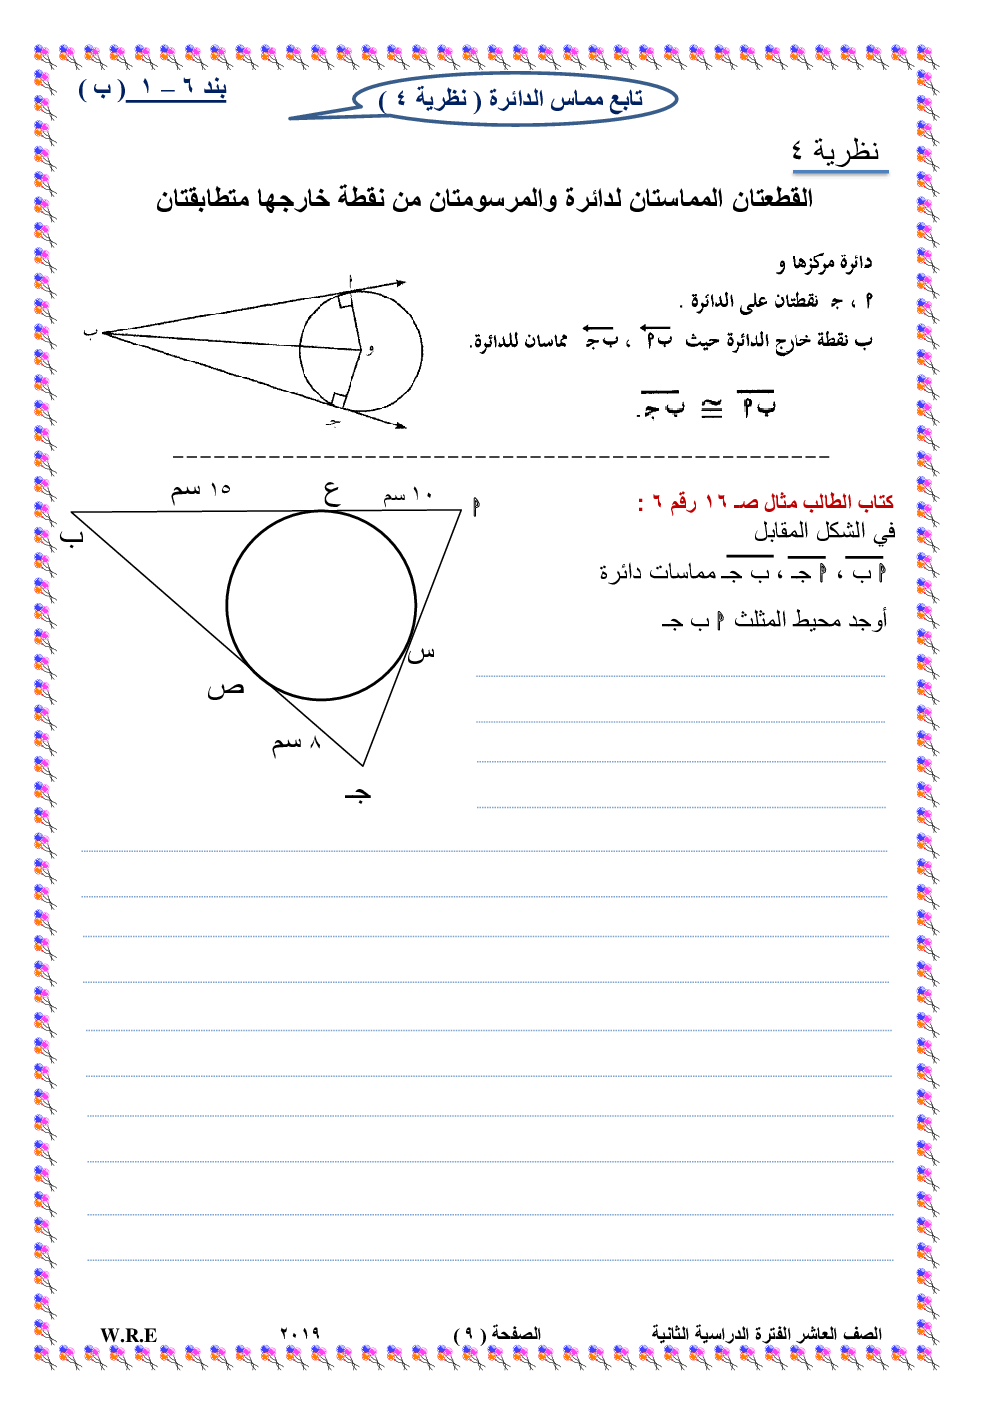 بند ٦ – ١ ( ب )
تابع مماس الدائرة ( نظرية ٤ )
نظرية ٤
القطعتان المماستان لدائرة والمرسومتان من نقطة خارجها متطابقتان
دائرة مركزها و
م ، جـ نقطتان على الدائرة .
ب نقطة خارج الدائرة حيث ب م ، ب جـ مماسان للدائرة.
ب م ≅ ب جـ .
ا
ب
و
جـ
كتاب الطالب مثال صـ ١٦ رقم ٦ :
في الشكل المقابل
م ب ، م جـ ، ب جـ مماسات دائرة
أوجد محيط المثلث م ب جـ
١٥ سم
ع
١٠ سم
م
ب
س
ص
٨ سم
جـ
الصف العاشر الفترة الدراسية الثانية
الصفحة ( ٩ )
٢٠١٩
W.R.E